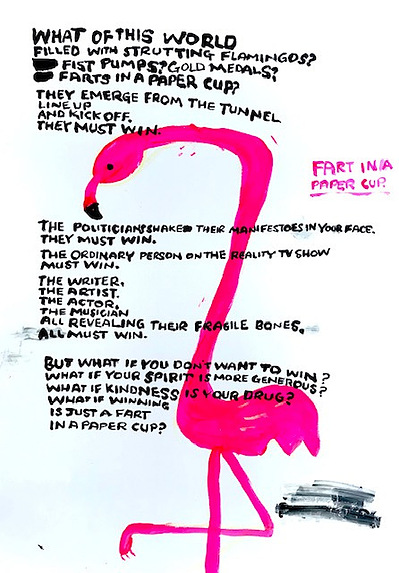 WHAT OF THIS WORLD
FILLED WITH STRUTTING FLAMINGOS?
FIST PUMPS? GOLD MEDALS?
FARTS IN A PAPER CUP?
THEY EMERGE FROM THE TUNNEL
LINE UP
AND KICK OFF.
THEY MUST WIN.
FART IN A
PAPER CUP.
THE POLITICIANS SHAKE THEIR MANIFESTOES IN YOUR FACE.
THEY MUST WIN.
THE ORDINARY PERSON ON THE REALITY TV SHOW
MUST WIN.
THE WRITER.
THE ARTIST.
THE ACTOR.
THE MUSICIAN
ALL REVEALING THEIR FRAGILE BONES.
ALL MUST WIN.
BUT WHAT IF YOU DON'T WANT TO WIN?
WHAT IF YOUR SPIRIT IS MORE GENEROUS?
WHAT IF KINDNESS IS YOUR DRUG?
WHAT IF WINNING
IS JUST A FART
IN A PAPER CUP?